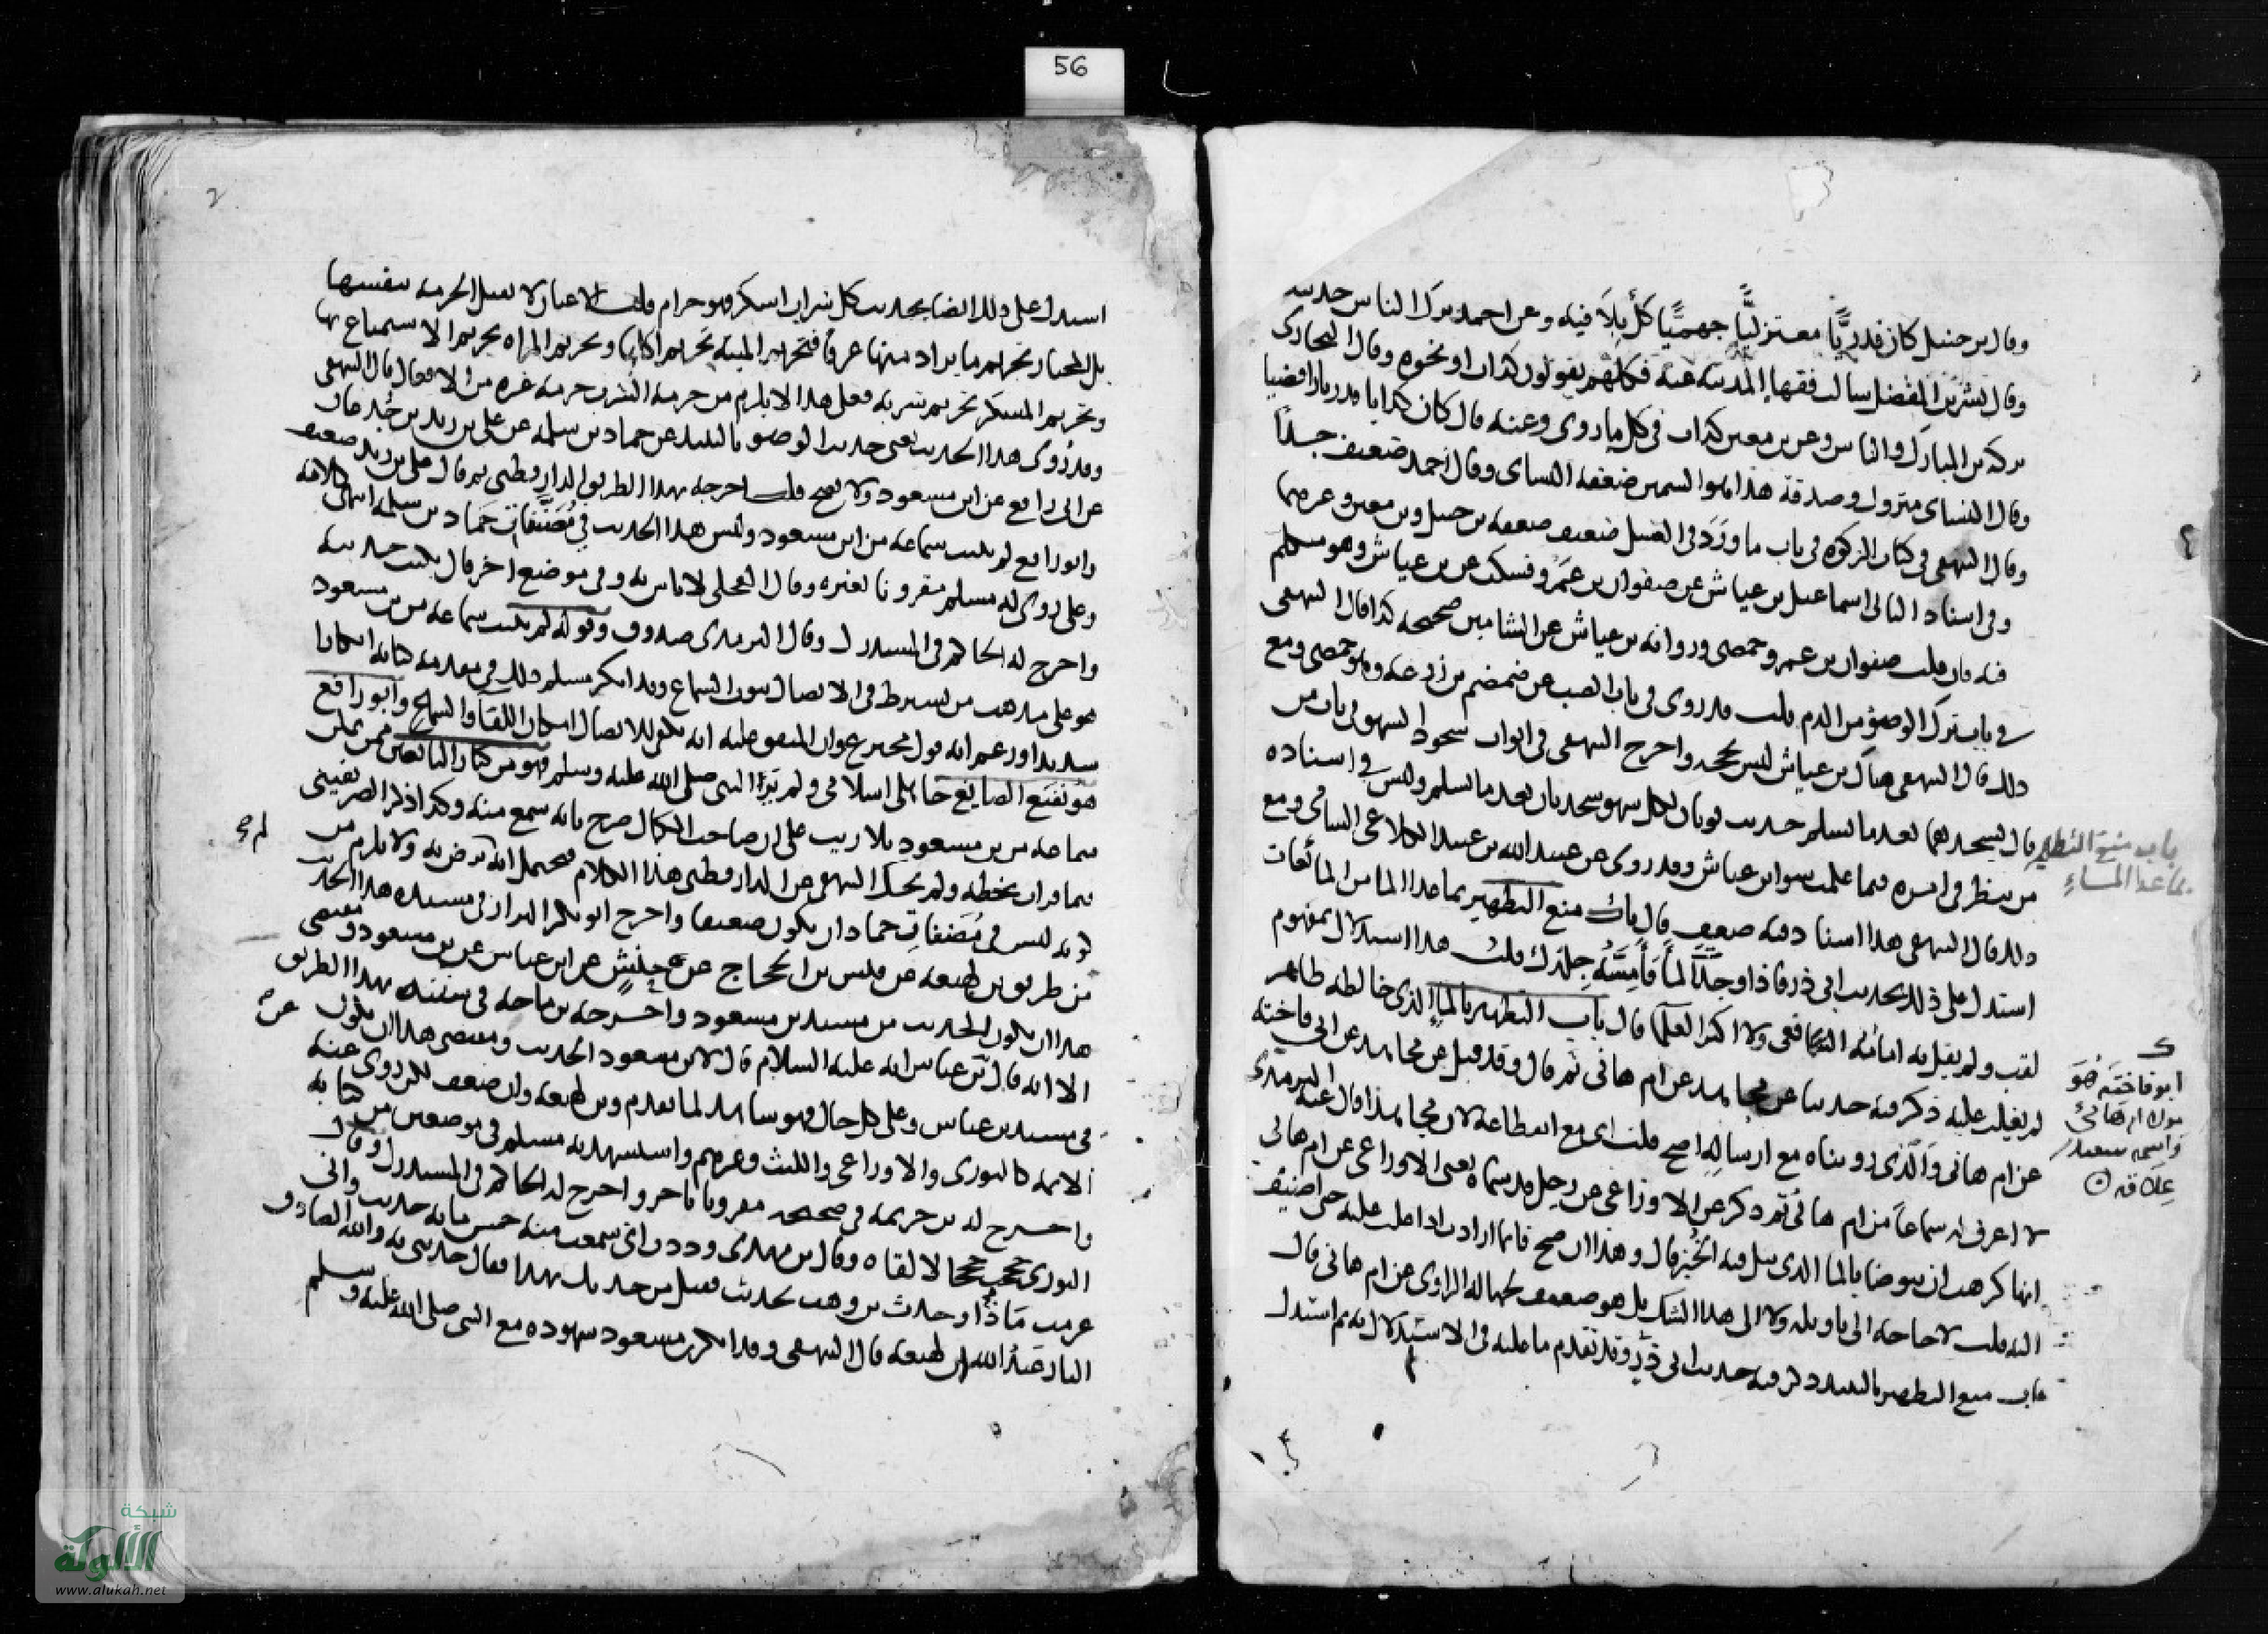 56
وقال بن حنبل كان قدريًّا معتزليًّا جهميًّا كل بلاء فيه وعن احمد ترك الناس حديثه
وقال بشر بن المفضل سالت فقها المدينة عنه فكلهم يقولون كذاب او نحوه وقال البخارى
تركه بن المبارك والناس وعن بن معين كذاب فى كل ما روى وعنه قال كان كذابا قدريا رافضيا
وقال النساى متروك وصدقة هذا هو السمين ضعفه النساى وقال احمد ضعيف جدا
وقال البيهقى فى كتاب الزكوة فى باب ما ورد فى العسل ضعيف ضعفه بن حنبل وبن معين وغيرهما
وفى اسناد الثانى اسماعيل بن عياش عن صفوان بن عمرو فسكت عن بن عياش وهو متكلم
فيه فان قلت صفوان بن عمرو حمصى ورواية بن عياش عن الشاميين صحيحه كذا قال البيهقى
فى باب ترك الوضوء من الدم قلت قد روى فى باب الضب عن ضمضم بن زرعه وهو حمصى ومع
ذلك قال البيهقى هناك بن عياش ليس بحجه واخرج البيهقى فى ابواب سجود السهو فى باب من
قال يسجدهما بعد ما يسلم حديث ثوبان لكل سهو سجدتان بعد ما يسلم وليس فى اسناده
من ينظر فى امره فيما علمت سوى ابن عياش وقد روى عن عبيد الله بن عبيد الكلاعى الشامى ومع
ذلك قال البيهقى هذا اسناد فيه ضعف قال باب منع التطهير بما عدا الما من المائعات
استدل على ذلك بحديث ابى ذر فاذا وجدت الما فأمسه جلدك قلت هذا استدلال بمفهوم
لقب ولم يقل به امامه الشافعى ولا اكثر العلما قال باب التطهير بالما الذى خالطه طاهر
لم يغلب عليه ذكر فيه حديثا عن مجاهد عن ام هانى ثم قال وقد قيل عن مجاهد عن ابى فاخته
عن ام هانى والذى رويناه مع ارساله اصح قلت اى مع انقطاعه لان مجاهدا قال عنه الترمذى
لا اعرف له سماعا من ام هانى ثم ذكر عن الاوزاعى عن رجل قد سماه يعنى الاوزاعى عن ام هانى
انها كرهت ان يتوضا بالما الذى يبل فيه الخبز قال وهذا ان صح فانما ارادت اذا غلب عليه حتى اضيف
اليه قلت لا حاجة الى تاويله ولا الى هذا الشك بل هو ضعيف لجهالة الراوى عن ام هانى قال
باب منع التطهير بالنبيذ ذكر فيه حديث ابى ذر وقد تقدم ما عليه فى الاستدلال به ثم استدل
باب منع التطهير
بما عدا الماء
ابو فاخته هو
مولى ام هانئ
واسمه سعيد
علاقه
استدل على ذلك ايضا بحديث كل شراب اسكر فهو حرام قلت الاعيان لا تقبل الحرمة بنفسها
بل المختار تحريم ما يراد منها عرفا فتحريم الميتة تحريم اكلها وتحريم المراه تحريم الاستمتاع بها
وتحريم المسكر تحريم شربه فعلى هذا لا يلزم من حرمة الشرب حرمة غيره من الافعال قال البيهقى
وقد روى هذا الحديث يعنى حديث الوضو بالنبيذ عن حماد بن سلمه عن على بن زيد بن جدعان
عن ابى رافع عن ابن مسعود ولا يصح قلت اخرجه بهذا الطريق الدارقطنى ثم قال على بن زيد ضعيف
وابو رافع لم يثبت سماعه من ابن مسعود وليس هذا الحديث فى مصنفات حماد بن سلمه انتهى كلامه
وعلى روى له مسلم مقرونا بغيره وقال العجلى لا باس به وفى موضع اخر قال يكتب حديثه
واخرج له الحاكم فى المستدرك وقال الترمذى صدوق وقوله لم يثبت سماعه من بن مسعود
هو على مذهب من يشترط فى الاتصال ثبوت السماع وقد انكر مسلم ذلك فى مقدمة كتابه انكارا
شديدا وزعم انه قول مخترع وان المتفق عليه انه يكفى للاتصال امكان اللقا والسماع وابو رافع
هو نفيع الصايغ جاهلى اسلامى ولم ير النبى صلى الله عليه وسلم فهو من كبار التابعين ممن يمكن
سماعه من بن مسعود بلا ريب على ان صاحب الكمال صرح بانه سمع منه وكذا ذكر الصريفينى
فيما قرات بخطه ولم يحك البيهقى عن الدارقطنى هذا الكلام فيحتمل انه لم يرض به ولا يلزم من
كونه ليس فى مصنفات حماد ان يكون ضعيفا واخرج ابو بكر البزار فى مسنده هذا الحديث
من طريق بن لهيعه عن قيس بن الحجاج عن حنش عن ابن عباس عن بن مسعود ومقتضى
هذا ان يكون الحديث من مسند بن مسعود واخرجه بن ماجه فى سننه بهذا الطريق
الا انه قال عن بن عباس انه عليه السلام قال لابن مسعود الحديث ومقتضى هذا ان يكون
فى مسند بن عباس وعلى كل حال فهو شاهد لما تقدم وبن لهيعه وان ضعف لكن روى عنه
الائمه كالثورى والاوزاعى والليث وغيرهم واستشهد به مسلم فى موضعين من كتابه
واخرج له بن خزيمه فى صحيحه مقرونا باخر واخرج له الحاكم فى المستدرك وقال
الثورى حججت حججا لالقاه وقال بن مهدى وددت انى سمعت منه خمس مايه حديث وانى
غرمت ماذا وحدث بن وهب بحديث فقيل من حدثك بهذا فقال حدثنى به والله الصادق
البار عبد الله بن لهيعه قال البيهقى وقد انكر بن مسعود شهوده مع النبى صلى الله عليه وسلم
شبكة
الألوكة
www.alukah.net